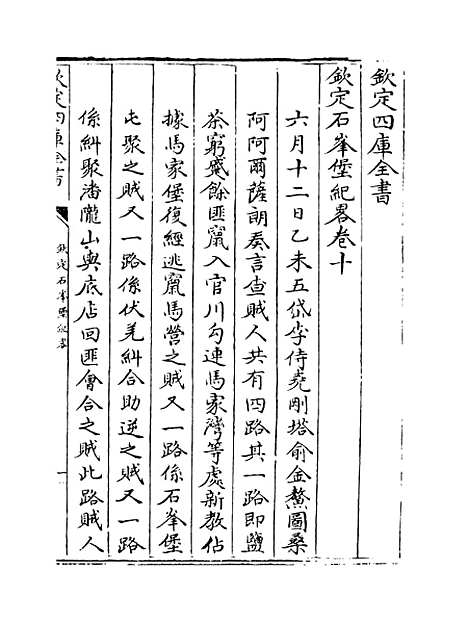 欽定四庫全書
欽定石峯堡紀畧卷十
六月十二日乙未五岱李侍堯剛塔俞金鰲圖桑
阿阿爾薩朗奏言查賊人共有四路其一路即鹽
茶窮蹙餘匪竄入官川勾連馬家灣等處新教佔
據馬家堡復經逃竄馬營之賊又一路係石峯堡
屯聚之賊又一路係伏羌糾合助逆之賊又一路
係糾聚潘隴山與底店回匪會合之賊此路賊人
欽定四庫全書
欽定石峯堡紀畧
一